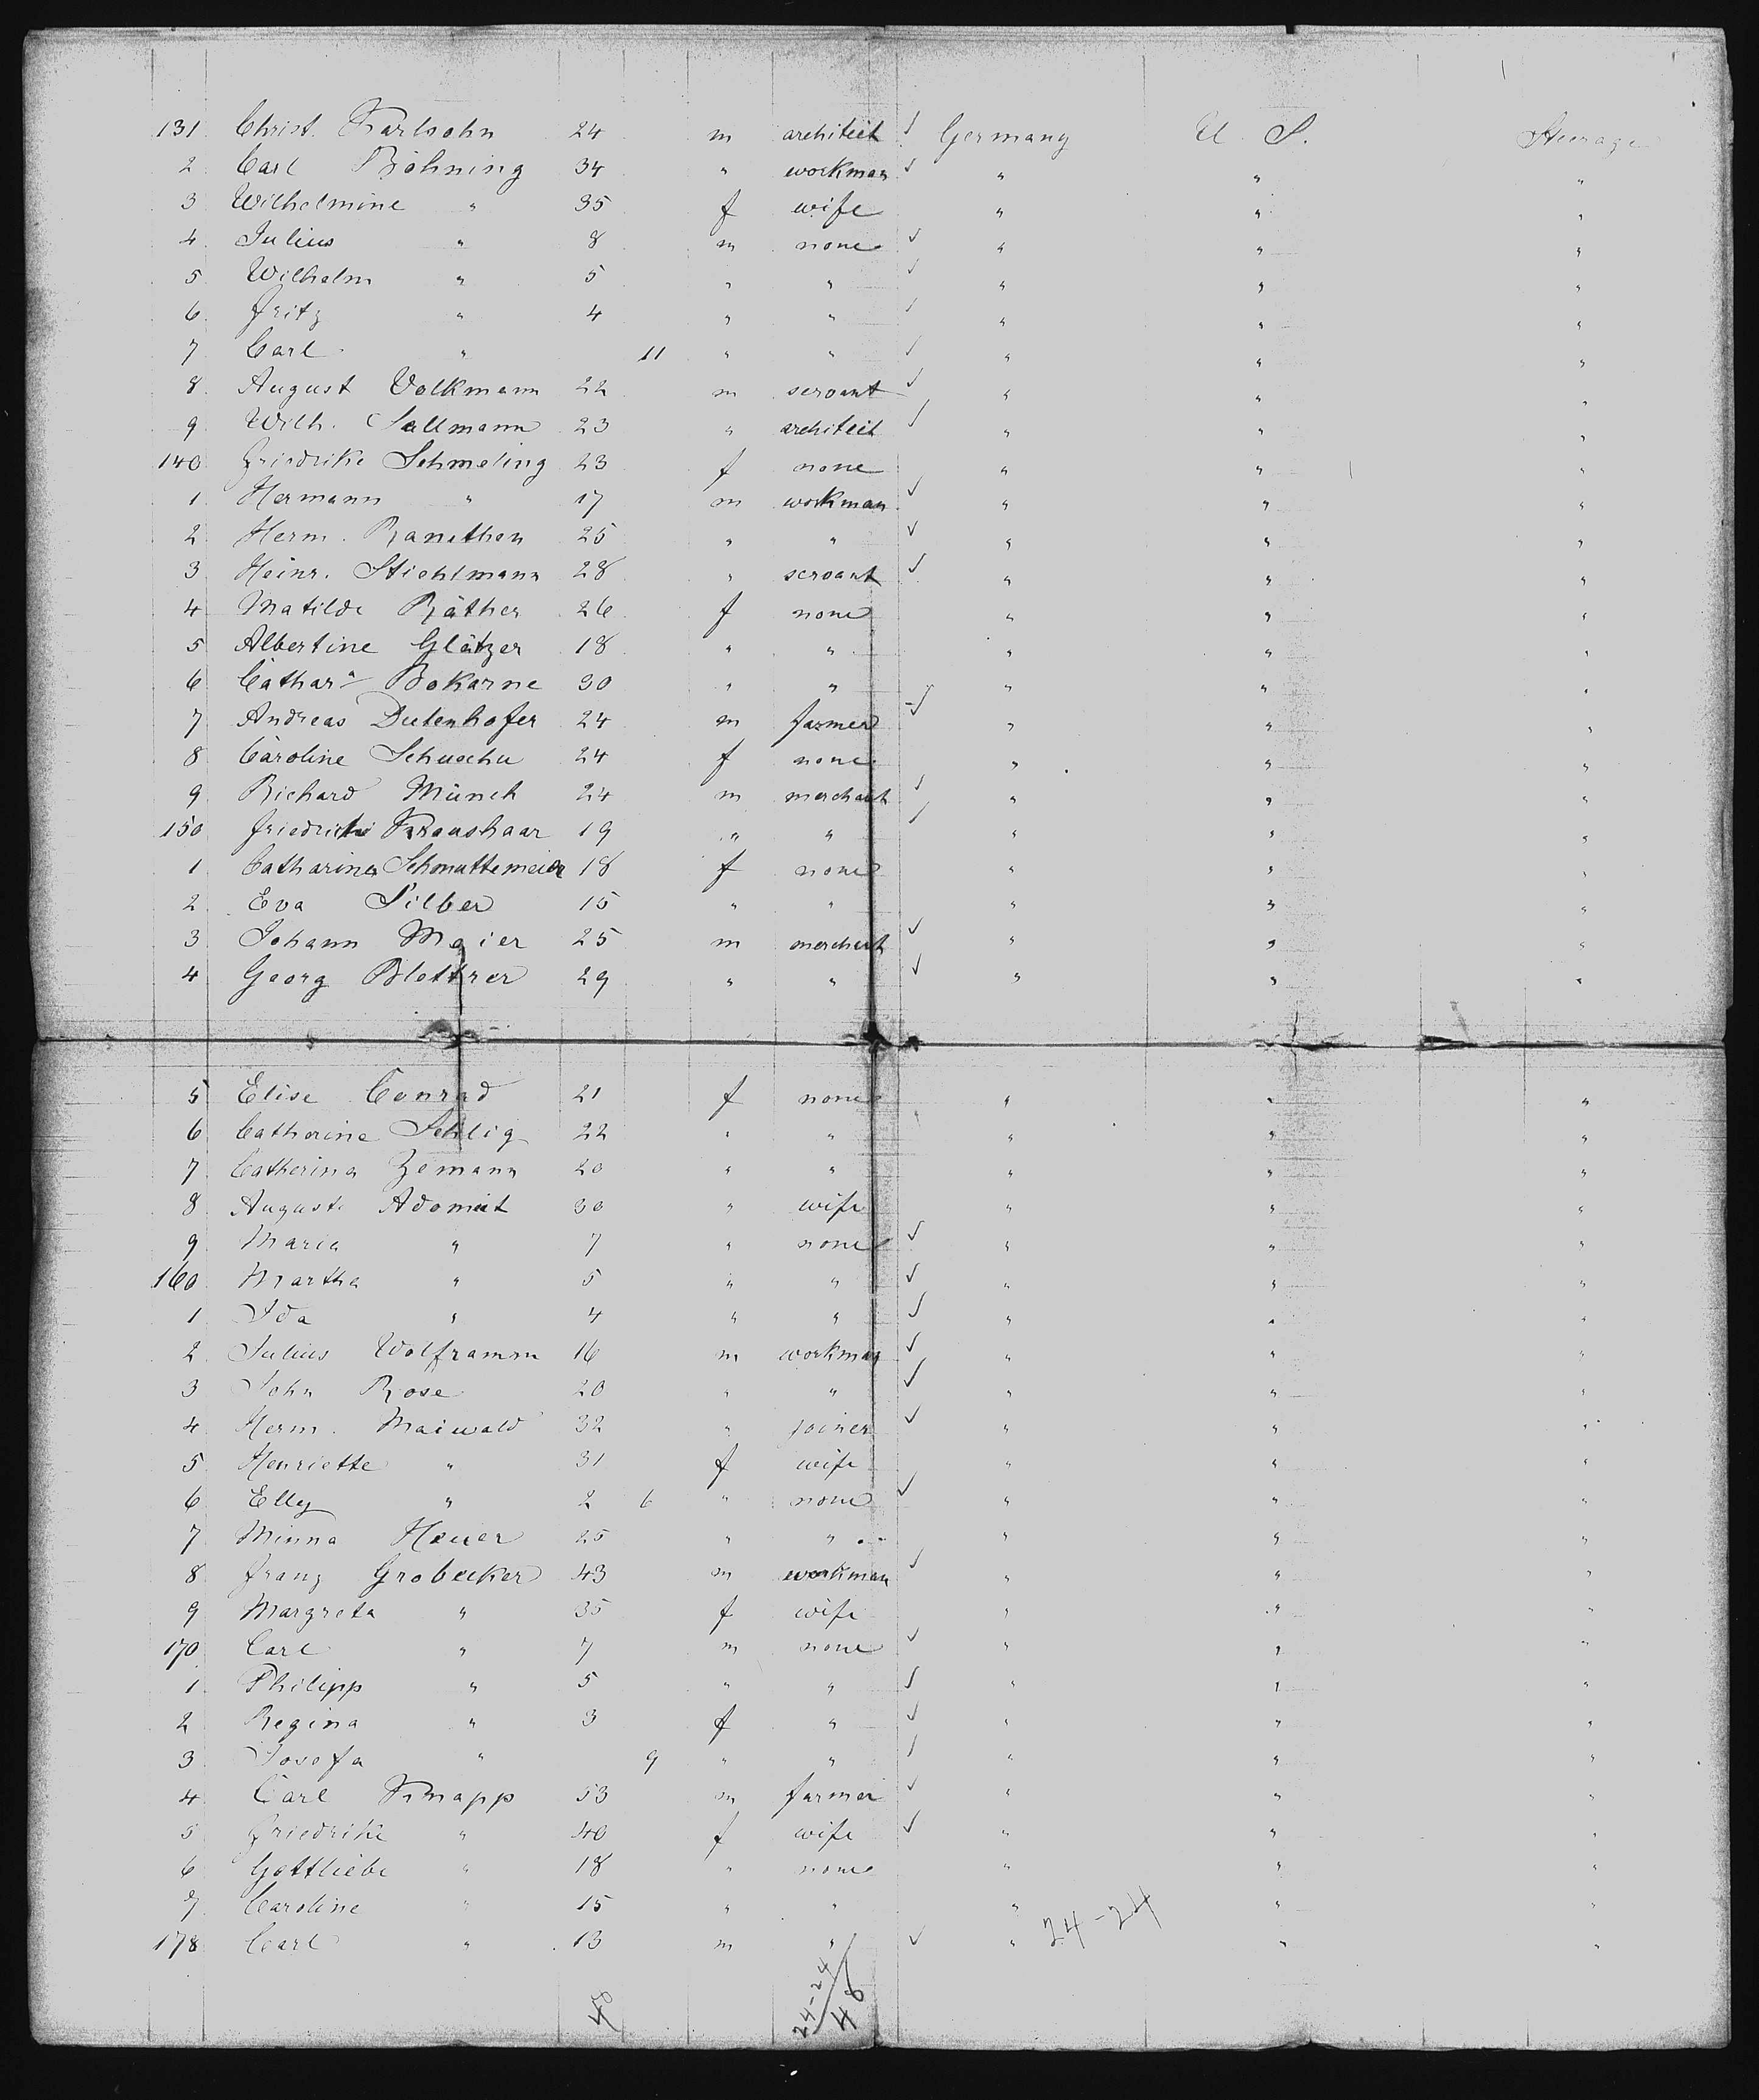 131 Christ. Karlsohn 24 m architect Germany U. S. Steerage
2 Carl Böhning 34 " workman " " "
3 Wilhelmine " 35 f wife " " "
4 Julius " 8 m none " " "
5 Wilhelm " 5 " " " " "
6 Fritz " 4 " " " " "
7 Carl " 11 " " " " "
8 August Volkmann 22 m servant " " "
9 Wilh. Sallmann 23 " architect " " "
140 Friedrike Schmeling 23 f none " " "
1 Hermann " 17 m workman " " "
2 Herm. Ranethen 25 " " " " "
3 Heinr. Stiehlmann 28 " servant " " "
4 Matilde Räther 26 f none " " "
5 Albertine Glätzer 18 " " " " "
6 Cathar a Bokarne 30 " " " " "
7 Andreas Dutenhofer 24 m farmer " " "
8 Caroline 24 f none " " "
9 Richard Münch 24 m merchant " " "
150 Kraushaar 19 " " " " "
1 Catharina Schmattemeier 18 f none " " "
2 Eva Silber 15 " " " " "
3 Johann Maier 25 m merchant " " "
4 Georg Blettrer 29 " " " " "
5 Elise Conrad 21 f none " " "
6 Catherine Sehlig 22 " " " " "
7 Catherina Zemann 20 " " " " "
8 Auguste Adomeit 30 " wife " " "
9 Maria " 7 " none " " "
160 Martha " 5 " " " " "
1 Ida " 4 " " " " "
2 Julius Wolframm 16 m workman " " "
3 John Rose 20 " " " " "
4 Herm. Maiwald 32 " joiner " " "
5 Henriette " 31 f wife " " "
6 Elly " 2 6 " none " " "
7 Minna Heuer 25 " " " " "
8 Franz Grobecker 43 m workman " " "
9 Margreta " 35 f wife " " "
170 Carl " 7 m none " " "
1 Philipp " 5 " " " " "
2 Regina " 3 f " " " "
3 Josefa " 9 " " " " "
4 Carl Knapp 53 m farmer " " "
5 Friedrike " 40 f wife " " "
6 Gottliebe " 18 " none " " "
7 Caroline " 15 " " " " "
178 Carl " 13 m " " " "
24-24
24-24
48